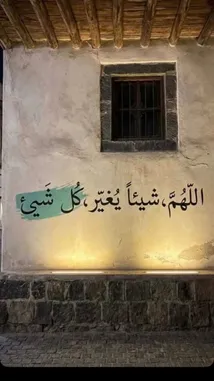 اللّهُمَّ،شيئاً يُغيّر،كُل شَيئ